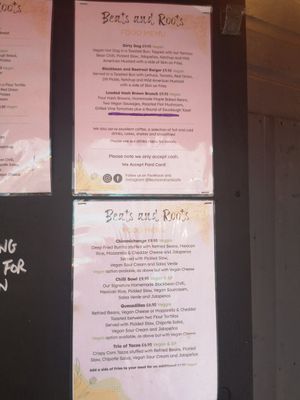 Beats and Roots
FOOD MENU
Dirty Dog £9.95 Vegan
Vegan Hot Dog in a Toasted Bun, Topped with our famous
Bean Chilli, Pickled Slaw, Jalapenos, Ketchup and Mild
American Mustard with a side of Skin on Fries
Blackbean and Beetroot Burger £9.95 Vegan
Served in a Toasted Bun with Lettuce, Tomato, Red Onion,
Dill Pickle, Ketchup and Mild American Mustard
with a side of Skin on Fries
Loaded Hash Brown Brunch £9.95 Vegan
Four Hash Browns, Homemade Maple Baked Beans,
Two Vegan Sausages, Roasted Flat Mushroom,
Grilled Vine Tomatoes plus a Round of Sourdough Toast
We also serve excellent coffee, a selection of hot and cold
drinks, cakes, shakes and smoothies
Please see our drinks menu for details
Please note we only accept cash.
We Accept Card
Follow us on Facebook and
Instagram
Beats and Roots
FOOD MENU
Chimmichanga £8.95 Veggie
Deep Fried Burrito stuffed with Refried Beans, Mexican
Rice, Mozzarella & Cheddar Cheese and Jalapenos
Served with Pickled Slaw,
Vegan Sour Cream and Salsa Verde
Vegan option available, as above but with Vegan Cheese
Chilli Bowl £8.95 Vegan & GF
Our Signature Homemade Blackbean Chilli,
Mexican Rice, Pickled Slaw, Vegan Sourcream,
Salsa Verde and Jalapenos
Quesadillas £6.95 Veggie
Refried Beans, Vegan Cheese or Mozzarella & Cheddar
Toasted between Two Flour Tortillas
Served with Pickled Slaw, Chipotle Salsa,
Vegan Sour Cream and Jalapenos
Vegan option available, as above but with Vegan Cheese
Trio of Tacos £6.95 Vegan & GF
Crispy Corn Tacos stuffed with Refried Beans, Pickled
Slaw, Chipotle Salsa, Vegan Sour Cream and Jalapenos
Add a side of fries to your meal for an additional
NG
FOR
N